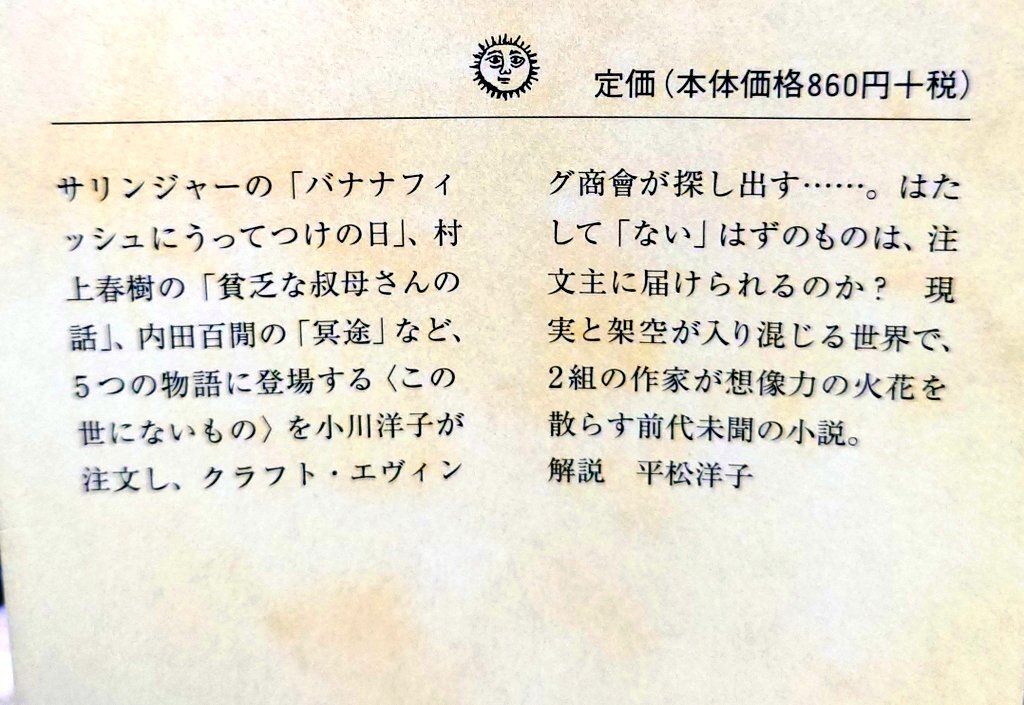 定価(本体価格860円+税)
サリンジャーの「バナナフィ
ッシュにうってつけの日」、村
上春樹の「貧乏な叔母さんの
話」、内田百閒の「冥途」など、
5つの物語に登場する〈この
世にないもの〉を小川洋子が
注文し、クラフト・エヴィン
グ商會が探し出す……。はた
して「ない」はずのものは、注
文主に届けられるのか?　現
実と架空が入り混じる世界で、
2組の作家が想像力の火花を
散らす前代未聞の小説。
解説　平松洋子